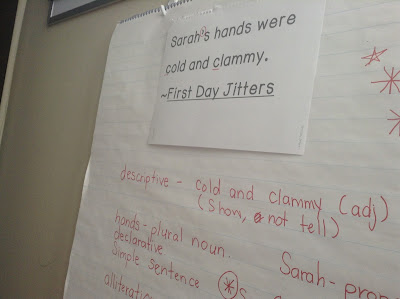 Sarah's hands were
cold and clammy.
~First Day Jitters
descriptive - cold and clammy (adj)
(Show, not tell)
hands - plural noun.
declarative
simple sentence
Sarah - prop
alliteratio